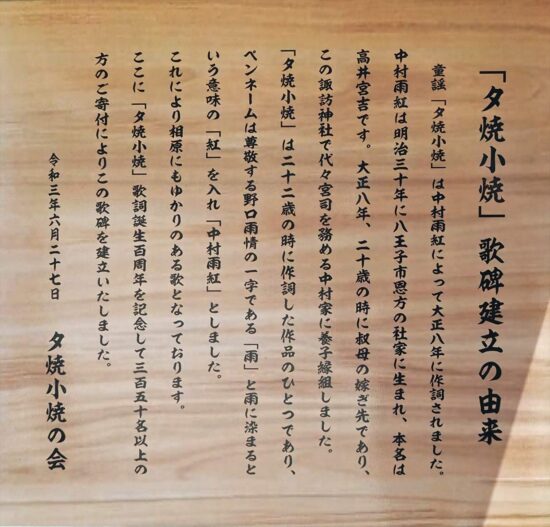 「夕焼小焼」歌碑建立の由来
童謡「夕焼小焼」は中村雨紅によって大正八年に作詞されました。
中村雨紅は明治三十年に八王子市恩方の社家に生まれ、本名は
高井宮吉です。大正八年、二十歳の時に叔母の嫁ぎ先であり、
この諏訪神社で代々宮司を務める中村家に養子縁組しました。
「夕焼小焼」は二十二歳の時に作詞した作品のひとつであり、
ペンネームは尊敬する野口雨情の一字である「雨」と雨に染まると
いう意味の「紅」を入れ「中村雨紅」としました。
これにより相原にもゆかりのある歌となっております。
ここに「夕焼小焼」歌詞誕生百周年を記念して三百五十名以上の
方のご寄付によりこの歌碑を建立いたしました。
令和三年六月二十七日
夕焼小焼の会